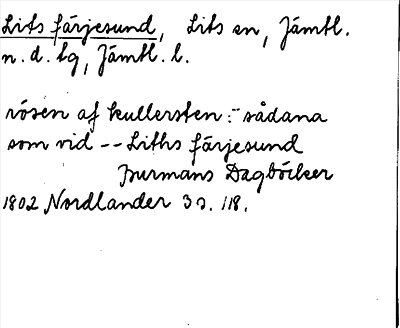 Lits färjesund, Lits sn, Jämtl.
n. d. tg, Jämtl. l.
rösen af kullersten :- sådana
som vid -- Liths färjesund
Burmans Dagböcker
1802 Nordlander 3 s. 118.